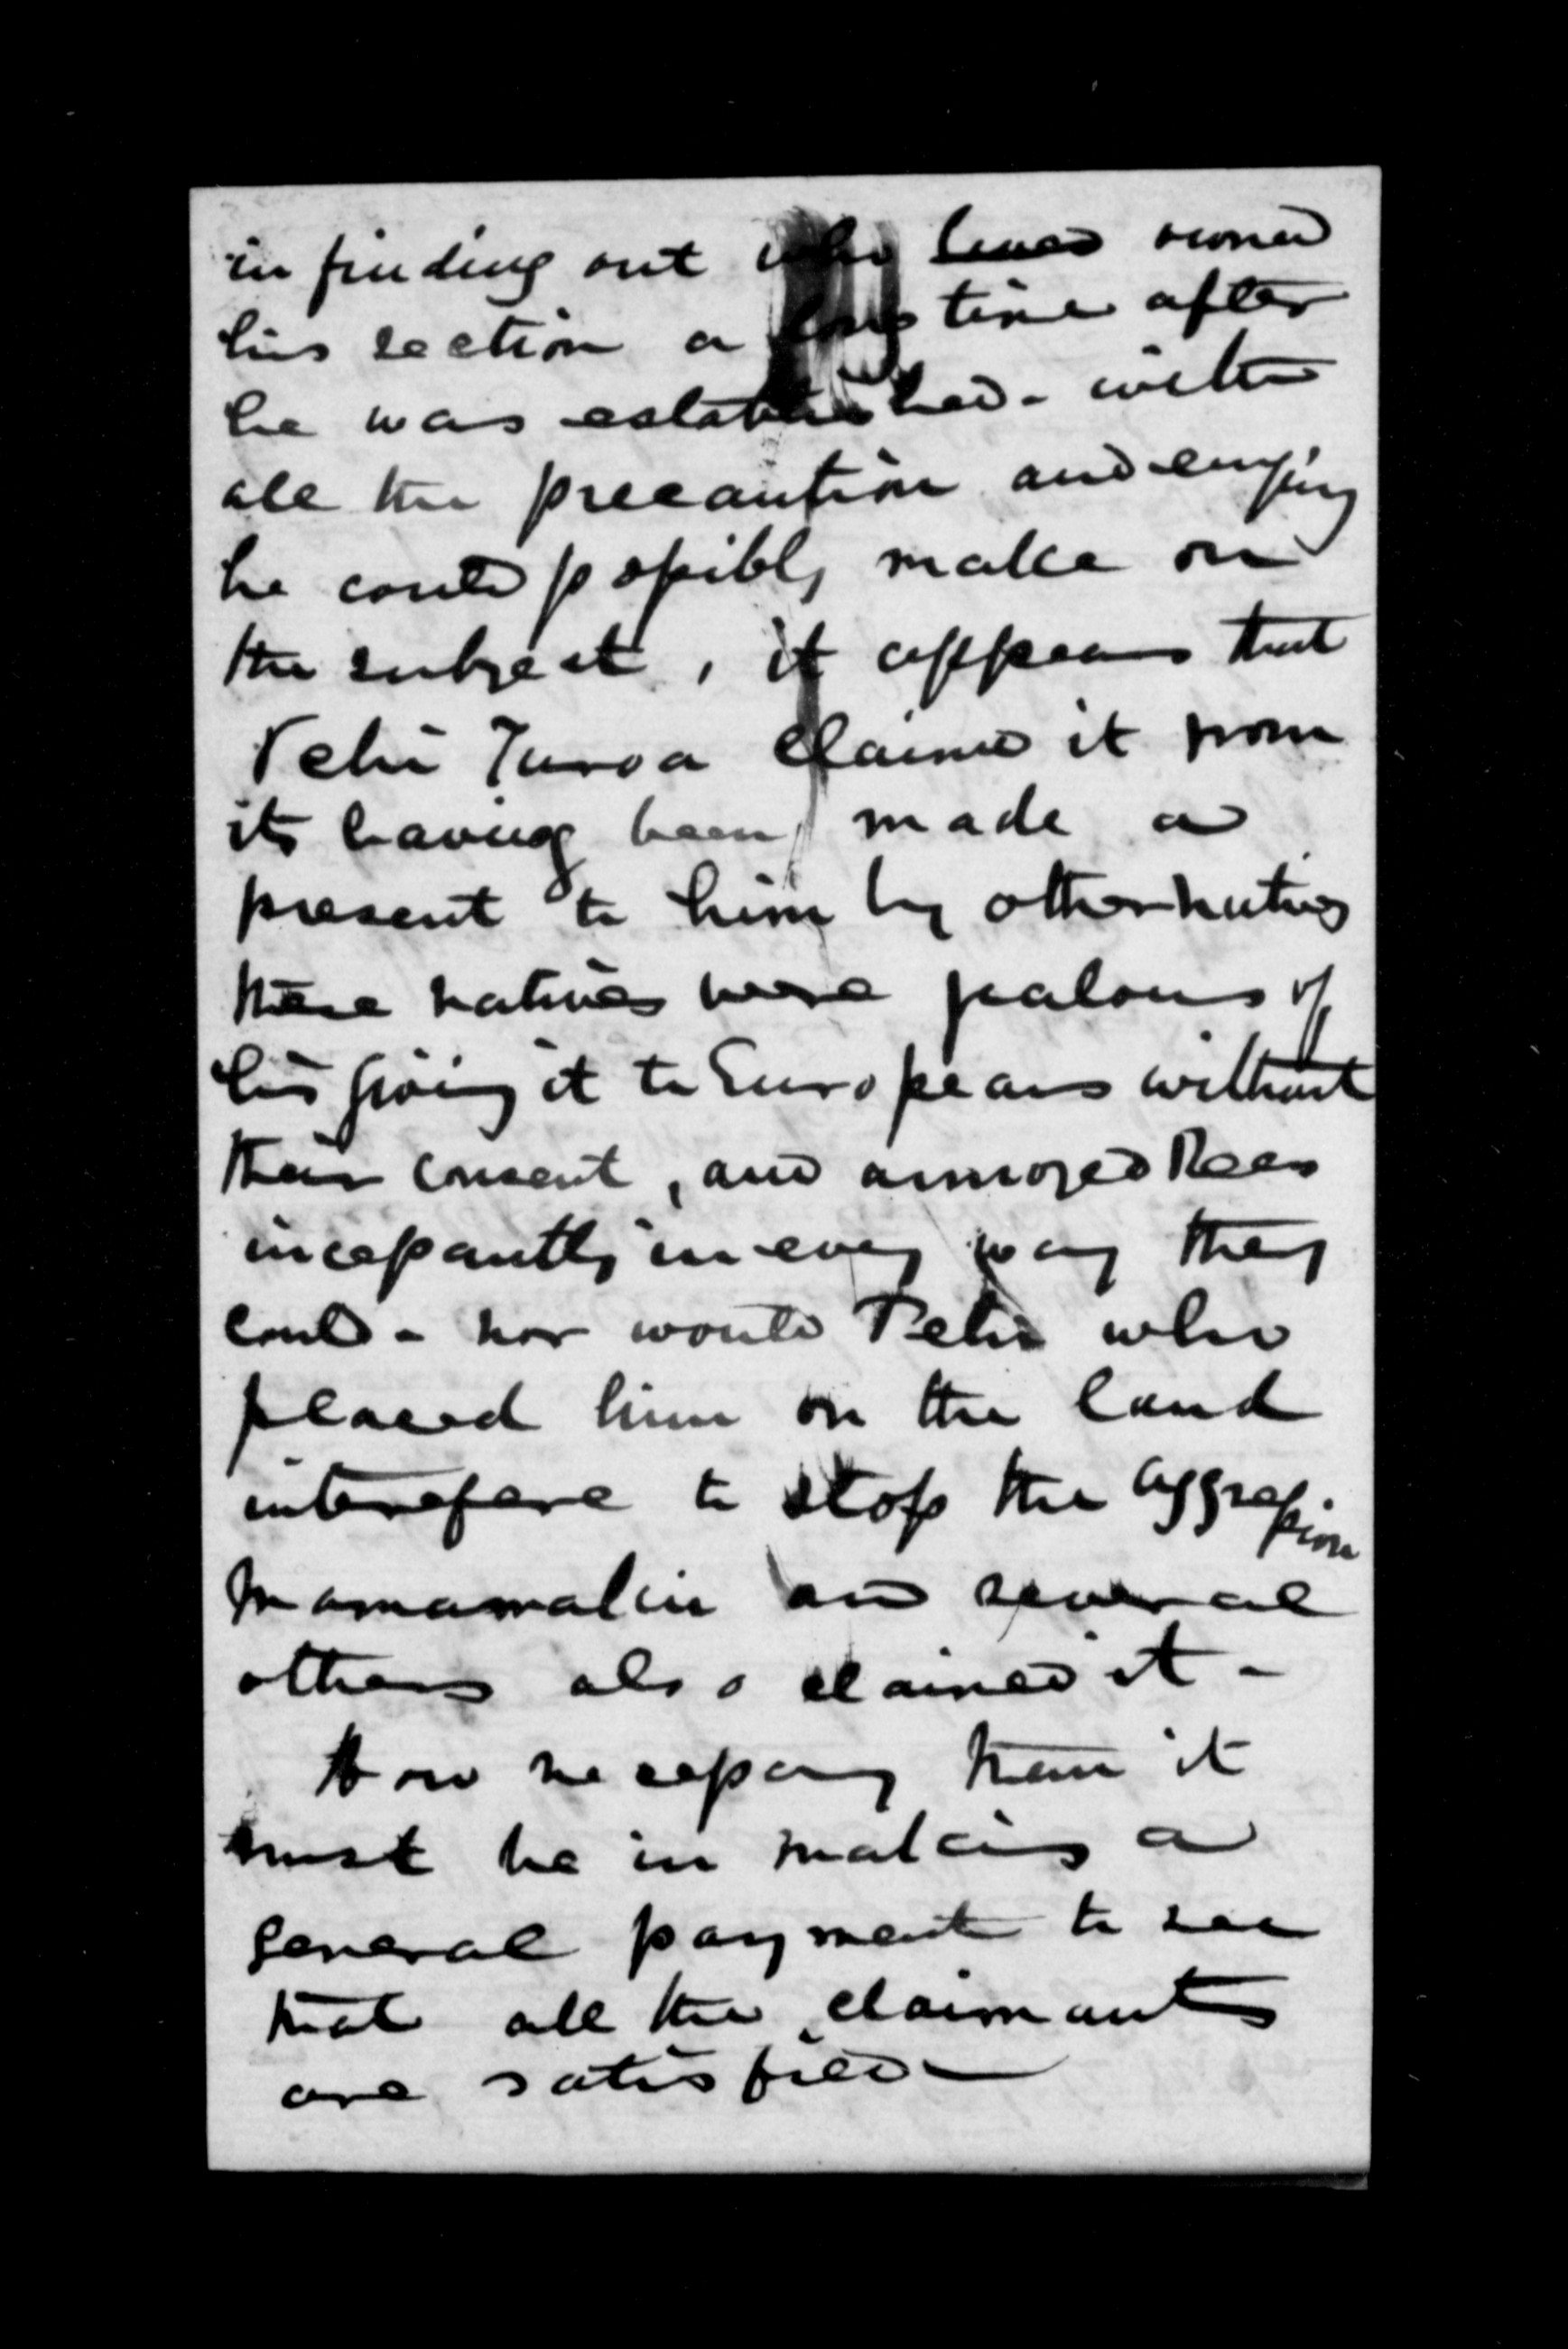 in finding out who lived owned
his section a long time after
he was established - with
all the precaution and enqy
he could possibly make on
the subject, it appears that
Pehi Turoa claimed it from
its having been made a
present to him by other natives
these natives were jealous of
his giving it to Europeans without
their consent, and annoyed Rees
incessantly in every way they
could - nor would Pehi who
placed him on the land
interefere to stop the aggression
Mamamaku and several
others also claimed it -
How necessary then it
must be in making a
general payment to see
that all the claimants
are satisfied -